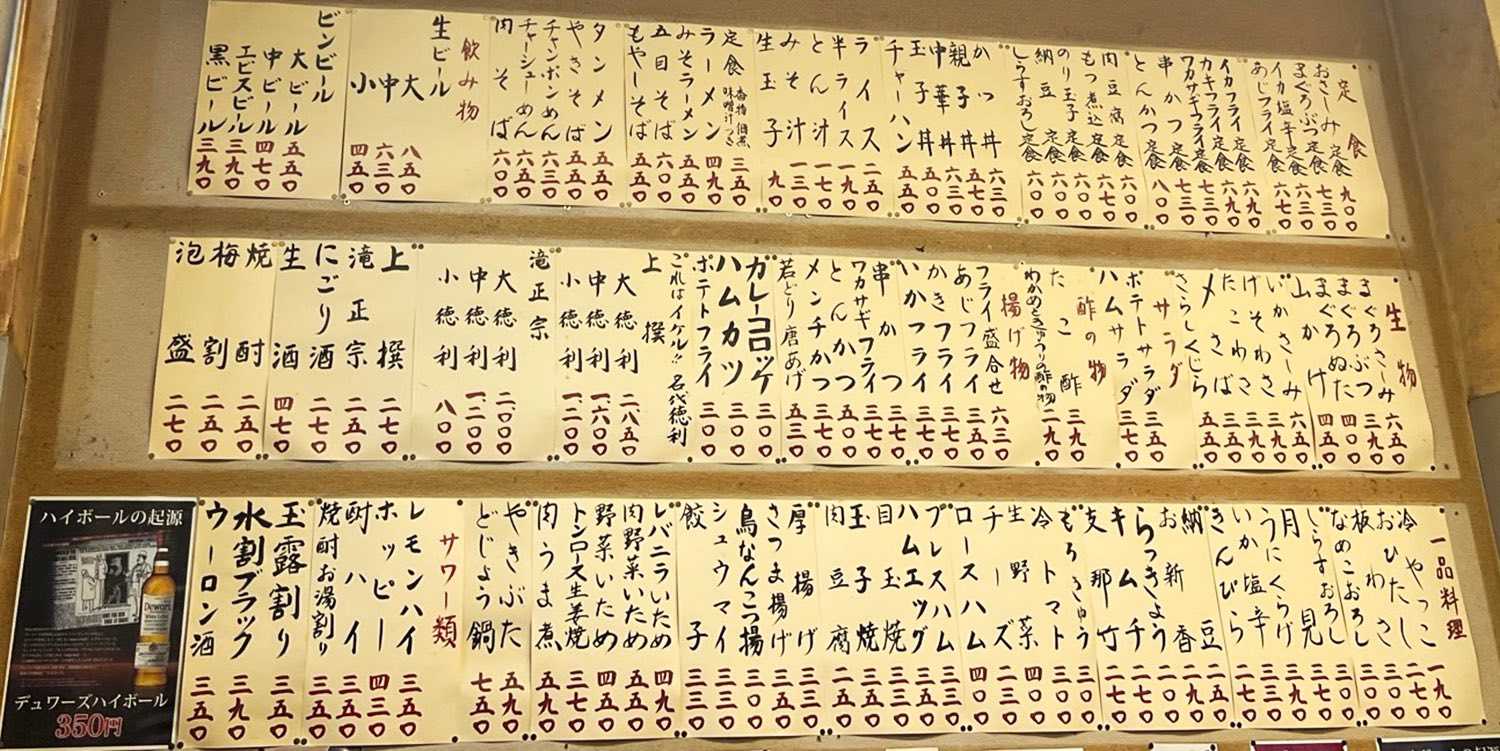 定食
おさしみ定食 九〇〇
まぐろぶつ定食 七三〇
イカ塩辛定食 六三〇
あじフライ定食 六七〇
イカフライ定食 六九〇
カキフライ定食 六九〇
ワカサギフライ定食 七三〇
串かつ定食 七三〇
とんかつ定食 八〇〇
肉豆腐定食 六〇〇
もつ煮込定食 六七〇
のり玉子定食 六〇〇
納豆定食 六〇〇
しらすおろし定食 六〇〇
かつ丼 六三〇
親子丼 五七〇
中華丼 六三〇
玉子丼 五〇〇
チャーハン 五五〇
ライス 二五〇
半ライス 一九〇
とん汁 一七〇
みそ汁 一三〇
生玉子 九〇
定食 香物 佃煮 味噌汁つき 三五〇
ラーメン 四九〇
みそラーメン 五五〇
五目そば 六〇〇
もやしそば 五五〇
タンメン 五五〇
やきそば 五五〇
チャンポンめん 六三〇
チャーシューめん 六五〇
肉そば 六〇〇
飲み物
生ビール
大 八五〇
中 六三〇
小 四五〇
ビンビール
大ビール 五五〇
中ビール 四七〇
エビスビール 三九〇
黒ビール 三九〇
生物
まぐろさしみ 六五〇
まぐろぶつ 三九〇
まぐろぬた 四〇〇
山かけ 四五〇
いかさしみ 六五〇
げそわさ 三九〇
たこわさ 三九〇
〆さば 三五〇
さらしくじら 五五〇
サラダ
ポテトサラダ 三五〇
ハムサラダ 三七〇
酢の物
たこ酢 三九〇
わかめときゅうりの酢の物 二九〇
揚げ物
フライ盛合せ 六三〇
あじフライ 三五〇
かきフライ 三七〇
いかフライ 三七〇
串かつ 三七〇
ワカサギフライ 三七〇
とんかつ 五〇〇
メンチかつ 三七〇
若どり唐あげ 五三〇
カレーコロッケ 三〇〇
ハムカツ 三〇〇
ポテトフライ 三〇〇
これはイケル!! 名代徳利
上撰
大徳利 二八五〇
中徳利 一六〇〇
小徳利 一二〇〇
滝正宗
大徳利 二〇〇〇
中徳利 一二〇〇
小徳利 八〇〇
上撰 二七〇
滝正宗 二五〇
にごり酒 二七〇
生酒 四七〇
焼酎 二五〇
梅割 二五〇
泡盛 二七〇
一品料理
冷やっこ 一九〇
おひたし 二七〇
板わさ 三〇〇
なめこおろし 三〇〇
しらすおろし 三〇〇
月見 二七〇
うにくらげ 三九〇
いか塩辛 三三〇
きんぴら 二七〇
納豆 二五〇
お新香 一九〇
らっきょう 二〇〇
キムチ 二七〇
支那竹 二七〇
もろきゅう 三〇〇
冷トマト 三〇〇
生野菜 三〇〇
チーズ 二三〇
ロースハム 四〇〇
プレスハム 三三〇
ハムエッグ 三九〇
目玉焼 三三〇
玉子焼 三五〇
肉豆腐 二五〇
厚揚げ 三三〇
さつま揚げ 三〇〇
鳥なんこつ揚 三五〇
シュウマイ 三三〇
餃子 三三〇
レバニラいため 四九〇
肉野菜いため 五五〇
野菜いため 四五〇
トンロース生姜焼 三七〇
肉うま煮 五九〇
やきぶた 五九〇
どじょう鍋 七五〇
サワー類
レモンハイ 三五〇
ホッピー 四三〇
酎ハイ 三五〇
焼酎お湯割り 三五〇
玉露割り 三五〇
水割ブラック 三九〇
ウーロン酒 三五〇
ハイボールの起源
Dewar's
デュワーズハイボール
350円